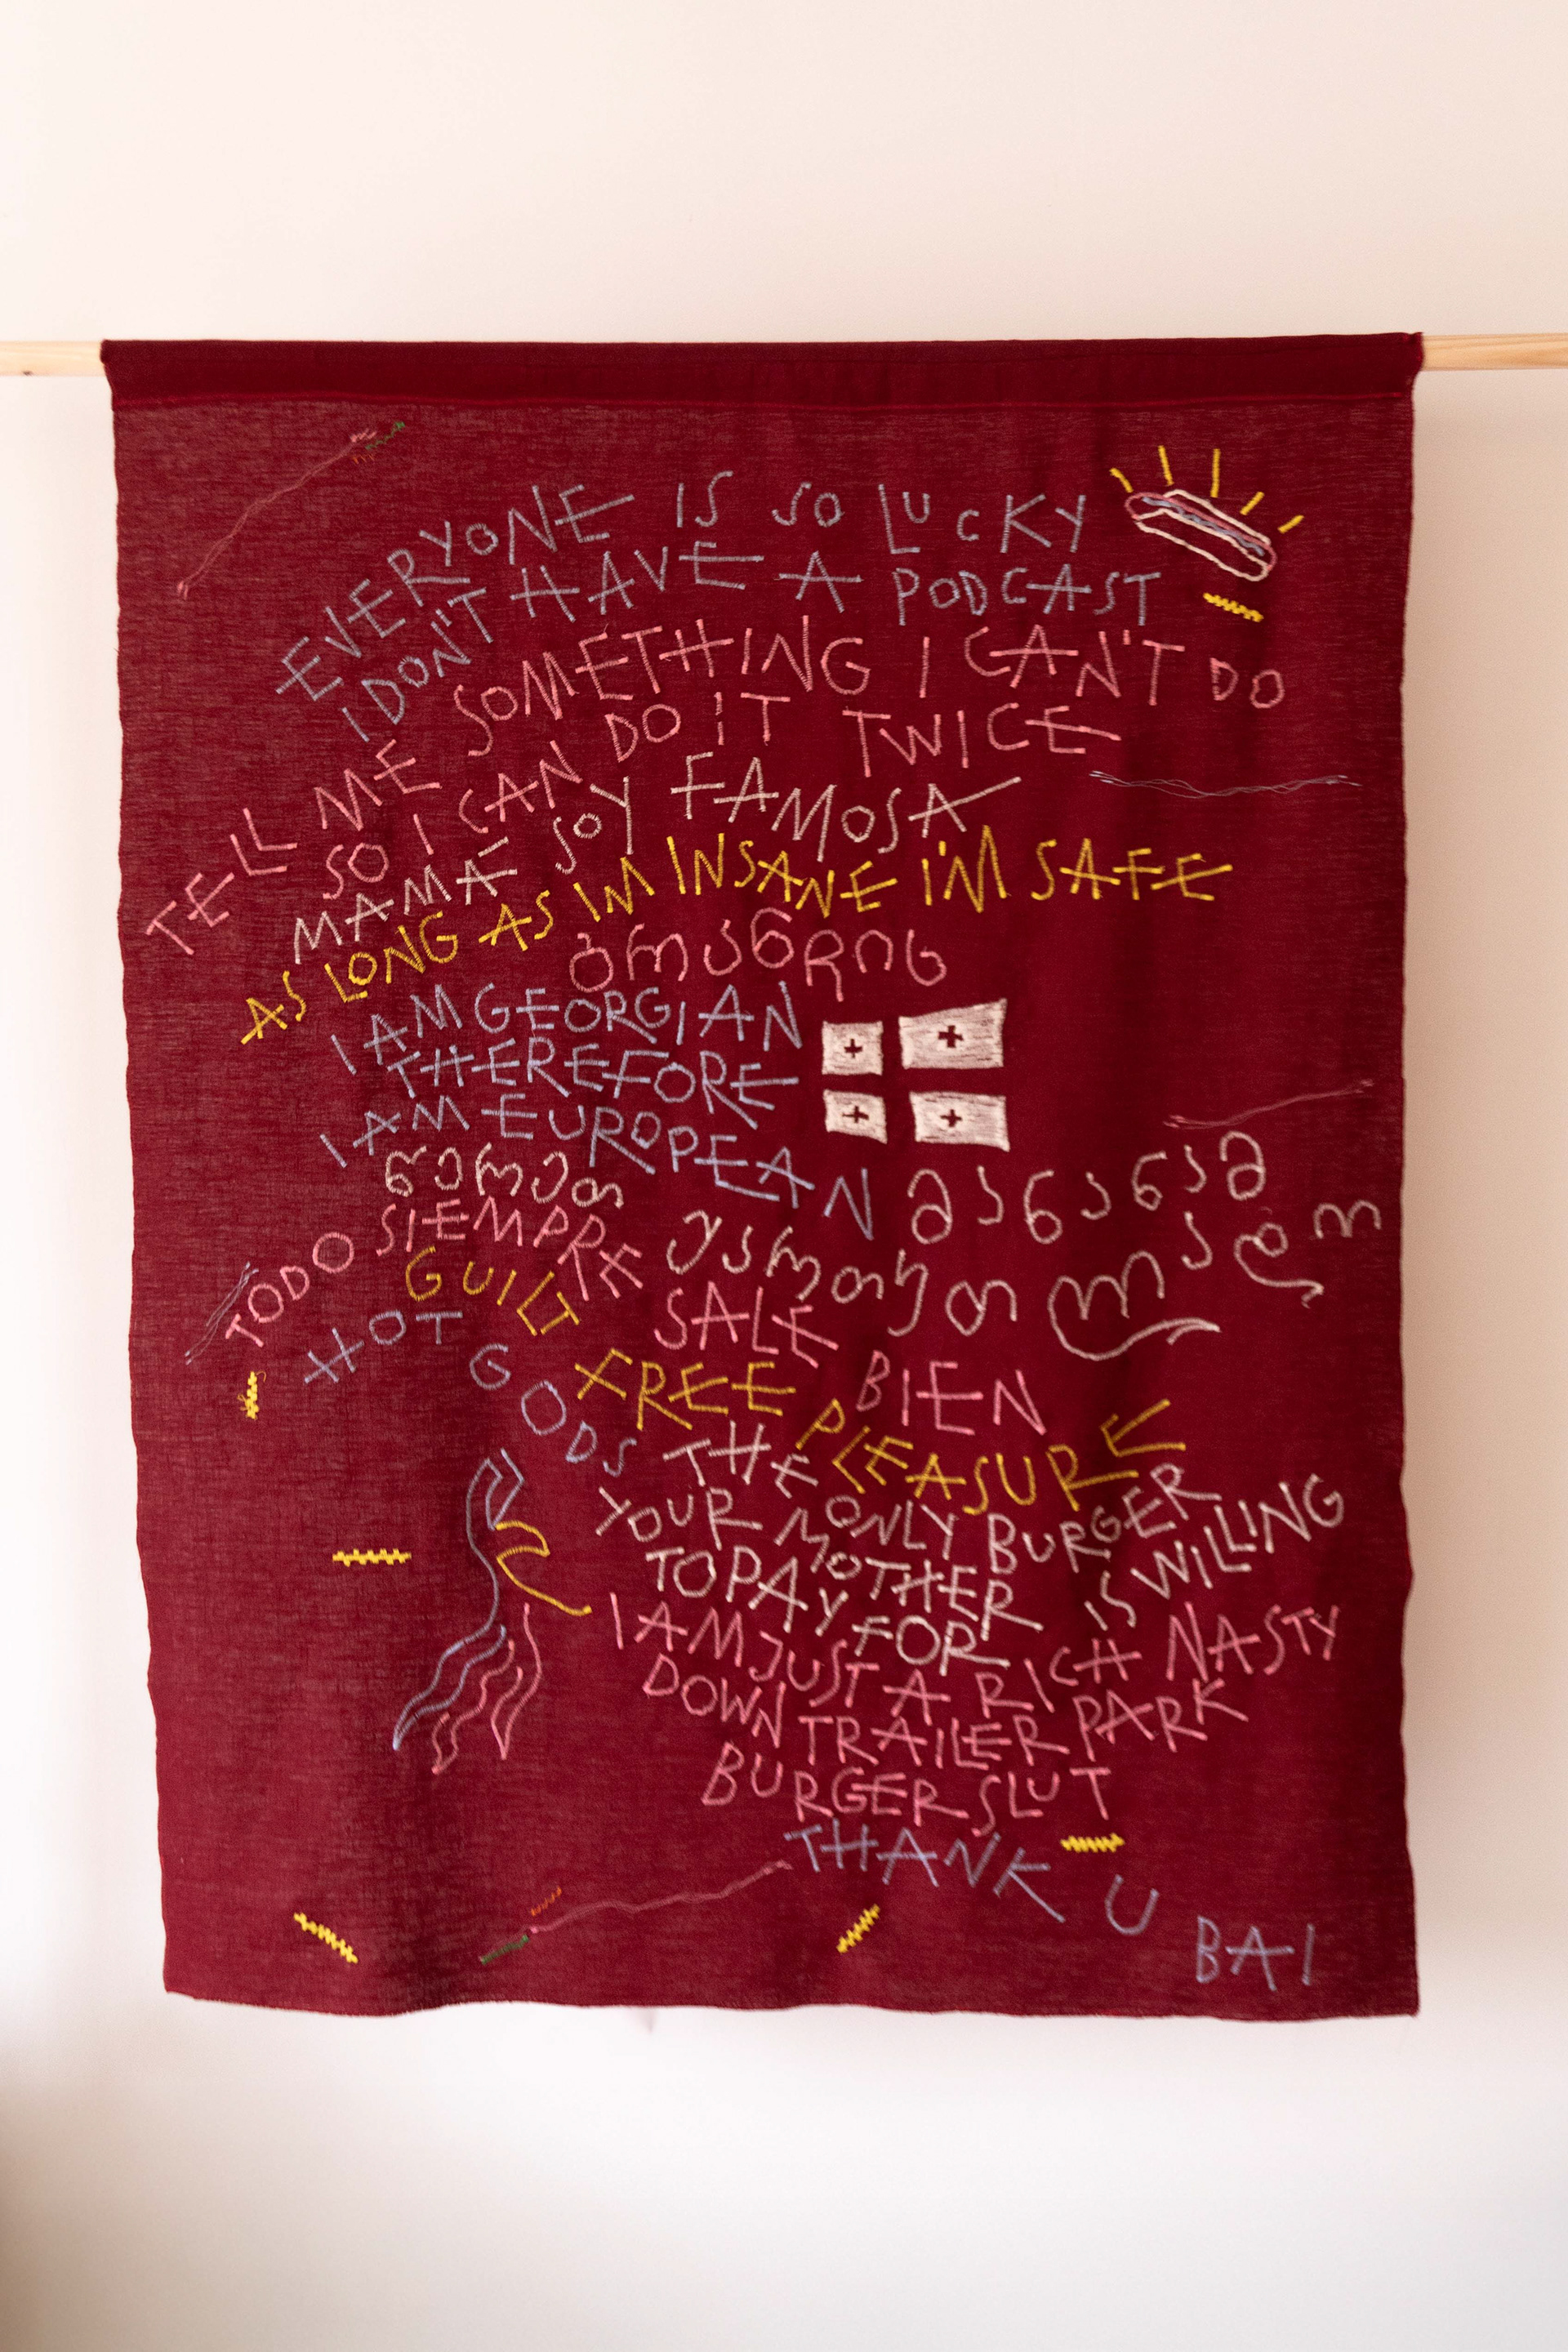 EVERYONE IS SO LUCKY
I DON'T HAVE A PODCAST
TELL ME SOMETHING I CAN'T DO
SO I CAN DO IT TWICE
MAMA SOY FAMOSA
AS LONG AS IM INSANE I'M SAFE
I AM GEORGIAN
THEREFORE
I AM EUROPEAN
მანანამ
TODO SIEMPRE
SALE
BIEN
GUILT
FREE
PLEASURE
HOT
GODS
THE ONLY BURGER
YOUR MOTHER IS WILLING
TO PAY FOR
I AM JUST A RICH NASTY
DOWN TRAILER PARK
BURGER SLUT
THANK U BAI